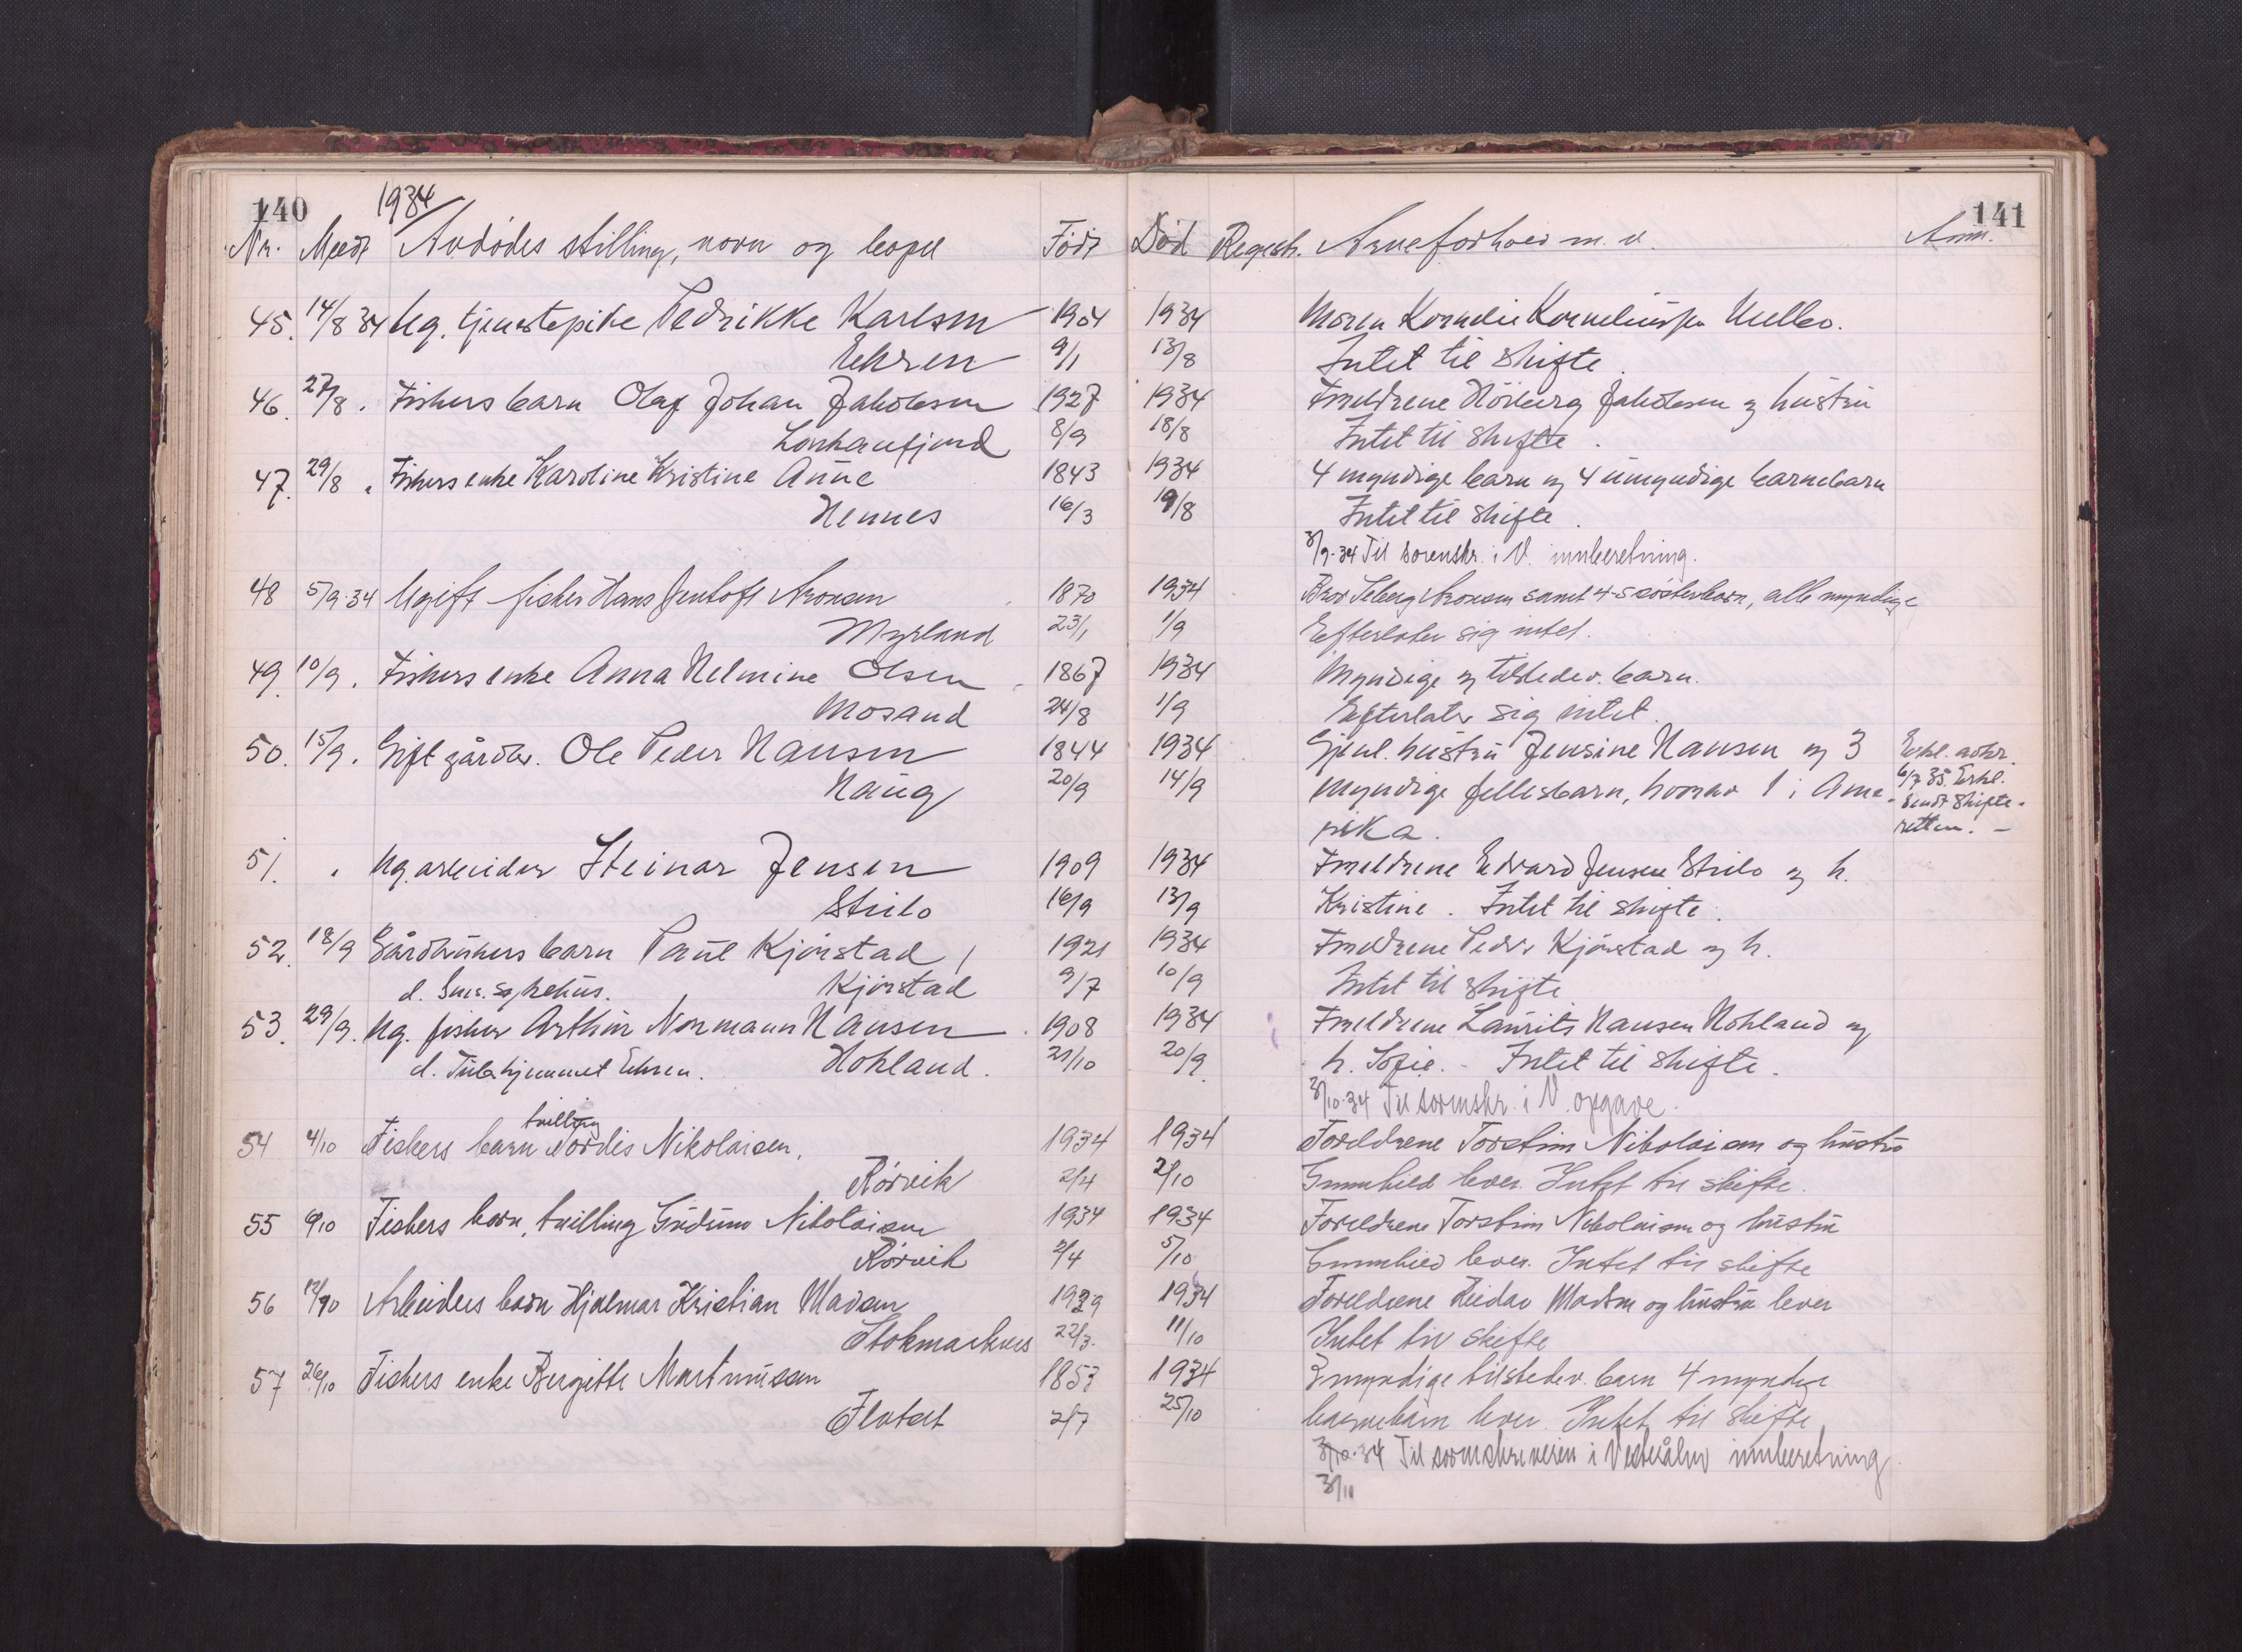 140
1934
141
Nr. Meldt Avdødes stilling, navn og bopel Født Død Registr. Arveforhold m.v. Anm.
45. 14/8 34 Ug. tjenestepike Pedrikke Karlsen 1904 1934 Moren Kornelie Korneliussen Melbo.
Ekren 9/1 13/8 Intet til skifte.
46. 27/8 . Fiskers barn Olaf Johan Jakobsen 1927 1934 Foreldrene Jakobsen og hustru
Lonkanfjord 8/9 18/8 Intet til skifte.
47. 29/8 " Fiskers enke Karoline Kristine Anne 1843 1934 4 myndige barn og 4 umyndige barnebarn
Hennes 16/3 19/8 Intet til skifte.
3/9-34 Til sorenskr. i V. innberetning.
48 5/9-34 Ugift fisker Hans Jentoft Aronsen 1870 1934 Bror Aronsen samt 4-5 søsterbarn, alle myndige
Myrland 23/1 1/9 Efterlater sig intet.
49. 10/9 . Fiskers enke Anna Helmine Olsen 1867 1934 Myndige og tilstedev. barn.
Mosand 24/8 1/9 Efterlater sig intet.
50. 15/9 . Gift gårdbr. Ole Peder Hansen 1844 1934 Gjenl. hustru Jensine Hansen og 3 Erkl. avkr.
Haug 20/9 14/9 myndige fellesbarn, hvorav 1 i Ame- 6/7 35. Erkl.
sendt skifte-
rika. retten. -
51. " Ug. arbeider Steinar Jensen 1909 1934 Foreldrene Edvard Jensen Strilo og h.
Strilo 16/9 13/9 Kristine. Intet til skifte.
52. 18/9 Gårdbrukers barn Paul Kjørstad, 1921 1934 Foreldrene Peder Kjørstad og h.
d. sykehus. Kjørstad 9/7 10/9 Intet til skifte
53. 29/9. Ug. fisker Arthur Normann Hansen 1908 1934 Foreldrene Laurits Hansen Hokland og
d. Tub.hjemmet Ekren. Hokland. 21/10 20/9. h. Sofie. - Intet til skifte.
3/10-34 Til sorenskr. i V. opgave.
tvilling
54 4/10 Fiskers barn Nordis Nikolaisen. 1934 1934 Foreldrene Torstein Nikolaisen og hustru
Rørvik 2/4 2/10 Gunnhild lever. Intet til skifte.
55 9/10 Fiskers barn, tvilling Gudrun Nikolaisen 1934 1934 Foreldrene Torstein Nikolaisen og hustru
Rørvik 2/4 5/10 Gunnhild lever. Intet til skifte
56 12/10 Arbeiders barn Hjalmar Kristian Madsen 1929 1934 Foreldrene Reidar Madsen og hustru lever
Stokmarknes 22/3. 11/10 Intet til skifte
57 26/10 Fiskers enke Bergitte Martinussen 1853 1934 3 myndige tilstedev. barn 4 myndige
Flatset 2/7 25/10 barnebarn lever. Intet til skifte
3/10-34 Til sorenskriveren i Vesterålen innberetning
3/11